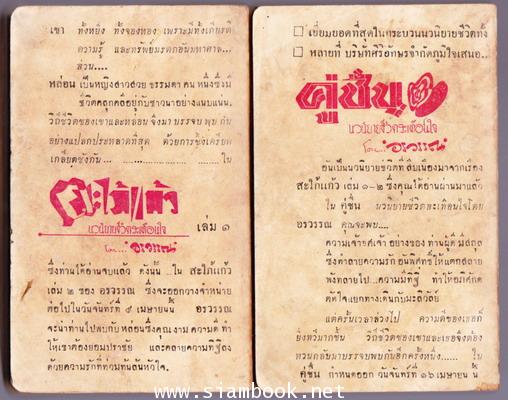 เขา ทั้งหยิ่ง ทั้งจองหอง เพราะมีทั้งเกียรติ
ความรู้ และทรัพย์มรดกอันมหาศาล...
ส่วน....
หล่อน เป็นหญิงสาวสวย ธรรมดา คน หนึ่งซึ่งมี
ชีวิตคลุกคลอยู่กับชาวนาอย่างแนบแน่น.
วิถีชีวิตของเขาและหล่อน จึงมา บรรจบ พบ กัน
อย่างแปลกประหลาดที่สุด ด้วยการชิงเครียด
เกลียดชังกัน... ... ใน
สะใภ้แก้ว
นวนิยายชีวิตสะเทือนใจ เล่ม ๑
โดย... อรวรรณ
ซึ่งท่านได้อ่านจบแล้ว ดังนั้น ...ใน สะใภ้แก้ว
เล่ม ๒ ของ อรวรรณ ซึ่งจะออกวางจำหน่าย
ต่อไปในวันจันทร์ที่ ๙ เมษายนนี้ อรวรรณ
จะนำท่านไปพบกับ หล่อนซึ่งคุณ งาม ความดี ทำ
ให้เขาต้องยอมปราชัย และคลายความทิฐิลง
ด้วยความรักที่ท่วมท้นล้นหัวใจ.
□ เยี่ยมยอดที่สุดในกระบวนนวนิยายชีวิตทั้ง
□ หลายที่ บริษัทศิริอักษรจำกัดภูมิใจเสนอ..
คู่ชื่น
นวนิยายชีวิตสะเทือนใจ
โดย... อรวรรณ
อันเป็นนวนิยายชีวิตที่สืบเนื่องมาจากเรื่อง
สะใภ้แก้ว เล่ม ๑-๒ ซึ่งคุณได้อ่านผ่านมาแล้ว
ใน คู่ชื่น นวนิยายชีวิตสะเทือนใจโดย
อรวรรณ คุณจะพบ....
ความเจ้ายศเจ้า อย่างของ ท่านผู้ดี มีสกุล
ซึ่งทำลายความรัก อันพิศุทธิ์ให้แตกสลาย
พังทลายไป...ความมีทิฐิ ทำให้อภิศักดิ์
ตัดใจแยกทางเดินกับมะลิวัลย์
แต่ครั้นเวลาล่วงไป ความดีของเธอก็
ยิ่งทวีมากขึ้น วิถีชีวิตของเขาและเธอจึงต้อง
หวนกลับมาบรรจบพบกันอีกครั้งหนึ่ง...... ใน
คู่ชื่น กำหนดออก วันจันทร์ที่ ๑๖ เมษายน นี้
www.siambook.net